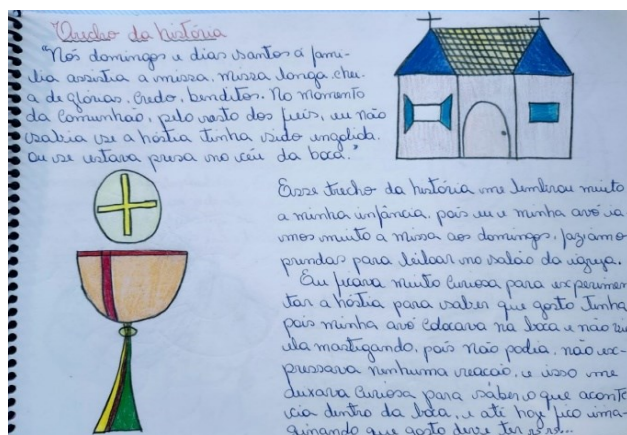 Trecho da história
"Nós domingos e dias santos a famí-
lia assistia a missa, missa longa, chei-
a de glórias, credo, benditos. No momento
da comunhão, pelo rosto dos fieis, eu não
sabia se a hóstia tinha sido engolida.
Ou se estava presa no céu da boca."
Esse trecho da história me lembrou muito
a minha infância, pois eu e minha avó ía
mos muito a missa aos domingos, faziamo
prendas para leiloar no salão da igreja.
Eu ficava muito curiosa para experimen
tar a hóstia para saber que gosto tinha
pois minha avó colocava na boca e não
ela mastigando, pois não podia, não ex-
pressava nenhuma reacaio, e isso me
deixava curiosa para sáber o que aconte
cia dentro da boca, e até hoje fico ima-
ginando que gosto deve ter rs rs...